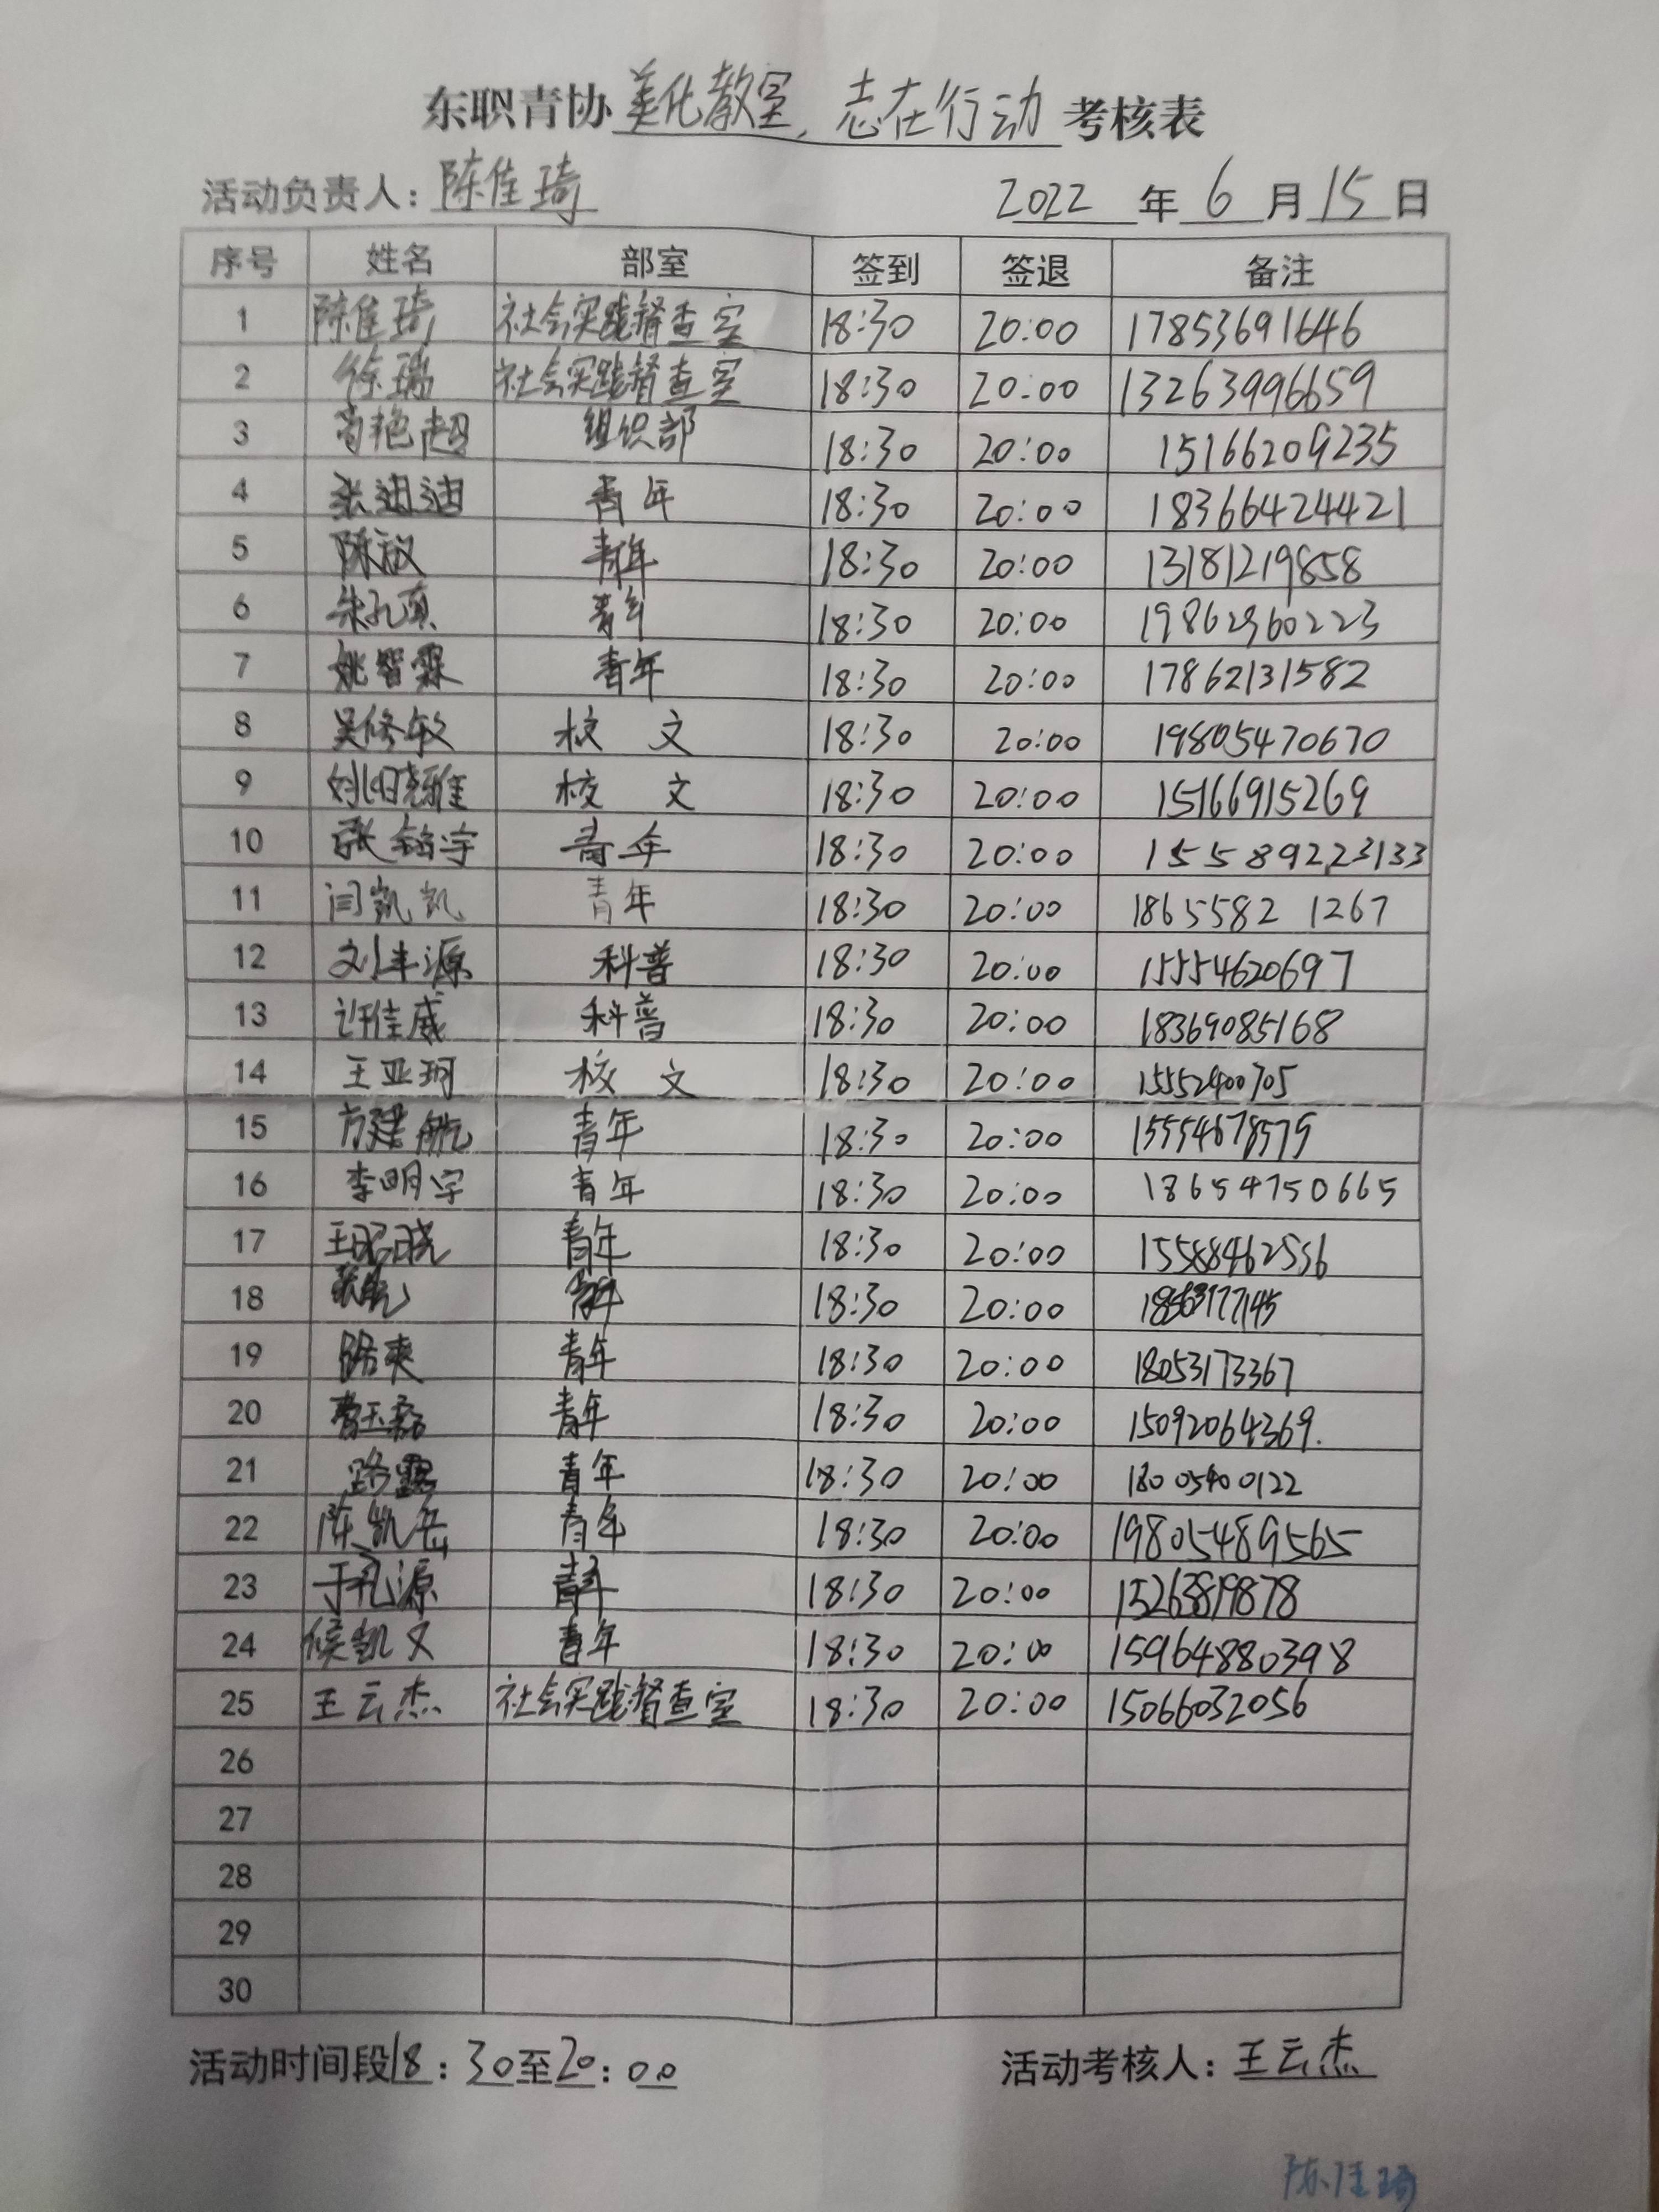 东职青协美化教室,志在行动考核表
活动负责人：陈佳琦 2022年6月15日
序号 姓名 部室 签到 签退 备注
1 陈佳琦 社会实践督查室 18:30 20:00 17853691646
2 徐瑞 社会实践督查室 18:30 20:00 13263996659
3 艳超 组织部 18:30 20:00 15166209235
4 张迪迪 青年 18:30 20:00 18366424421
5 陈 青年 18:30 20:00 13181219858
6 朱孔真 青年 18:30 20:00 19862960223
7 姚智霖 青年 18:30 20:00 17862131582
8 吴修敏 校文 18:30 20:00 19805470670
9 校文 18:30 20:00 15166915269
10 张铭宇 青年 18:30 20:00 15589223133
11 闫凯凯 青年 18:30 20:00 1865582 1267
12 刘丰源 科普 18:30 20:00 15554620697
13 许佳威 科普 18:30 20:00 18369085168
14 王亚珂 校文 18:30 20:00 15552400705
15 方建航 青年 18:30 20:00 15554678579
16 李明宇 青年 18:30 20:00 18654750665
17 王昭晓 青年 18:30 20:00 15588462556
18 青年 18:30 20:00
19 路爽 青年 18:30 20:00 18053173367
20 曹玉磊 青年 18:30 20:00 15092064369.
21 路露 青年 18:30 20:00 18005400122
22 陈凯岳 青年 18:30 20:00 19805489565
23 于孔源 青年 18:30 20:00 15263819878
24 侯凯文 青年 18:30 20:00 15964880398
25 王云杰 社会实践督查室 18:30 20:00 15066032056
26
27
28
29
30
活动时间段18：30至20：00 活动考核人：王云杰
陈佳琦